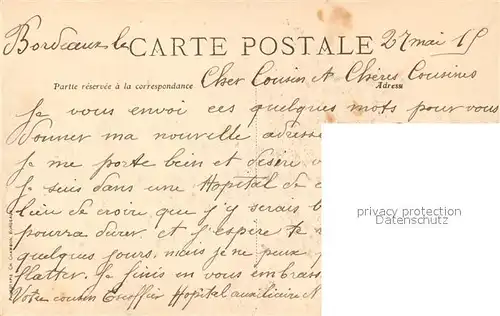 Bordeaux le CARTE POSTALE 27 mai 15
Partie réservée à la correspondance
Cher Cousin et Chères Cousines
Adresse
Je vous envoi ces quelques mots pour vous
donner ma nouvelle adresse
Je me porte bein et desire
Je suis dans une Hopital de
lieu de croire que j'y serais
pourra durer et j'espère te
quelques jours, mais je ne peux
flatter. Je finis en vous embrass
Votre cousin Escoffier Hopital auxiliaire N
privacy protection
Datenschutz